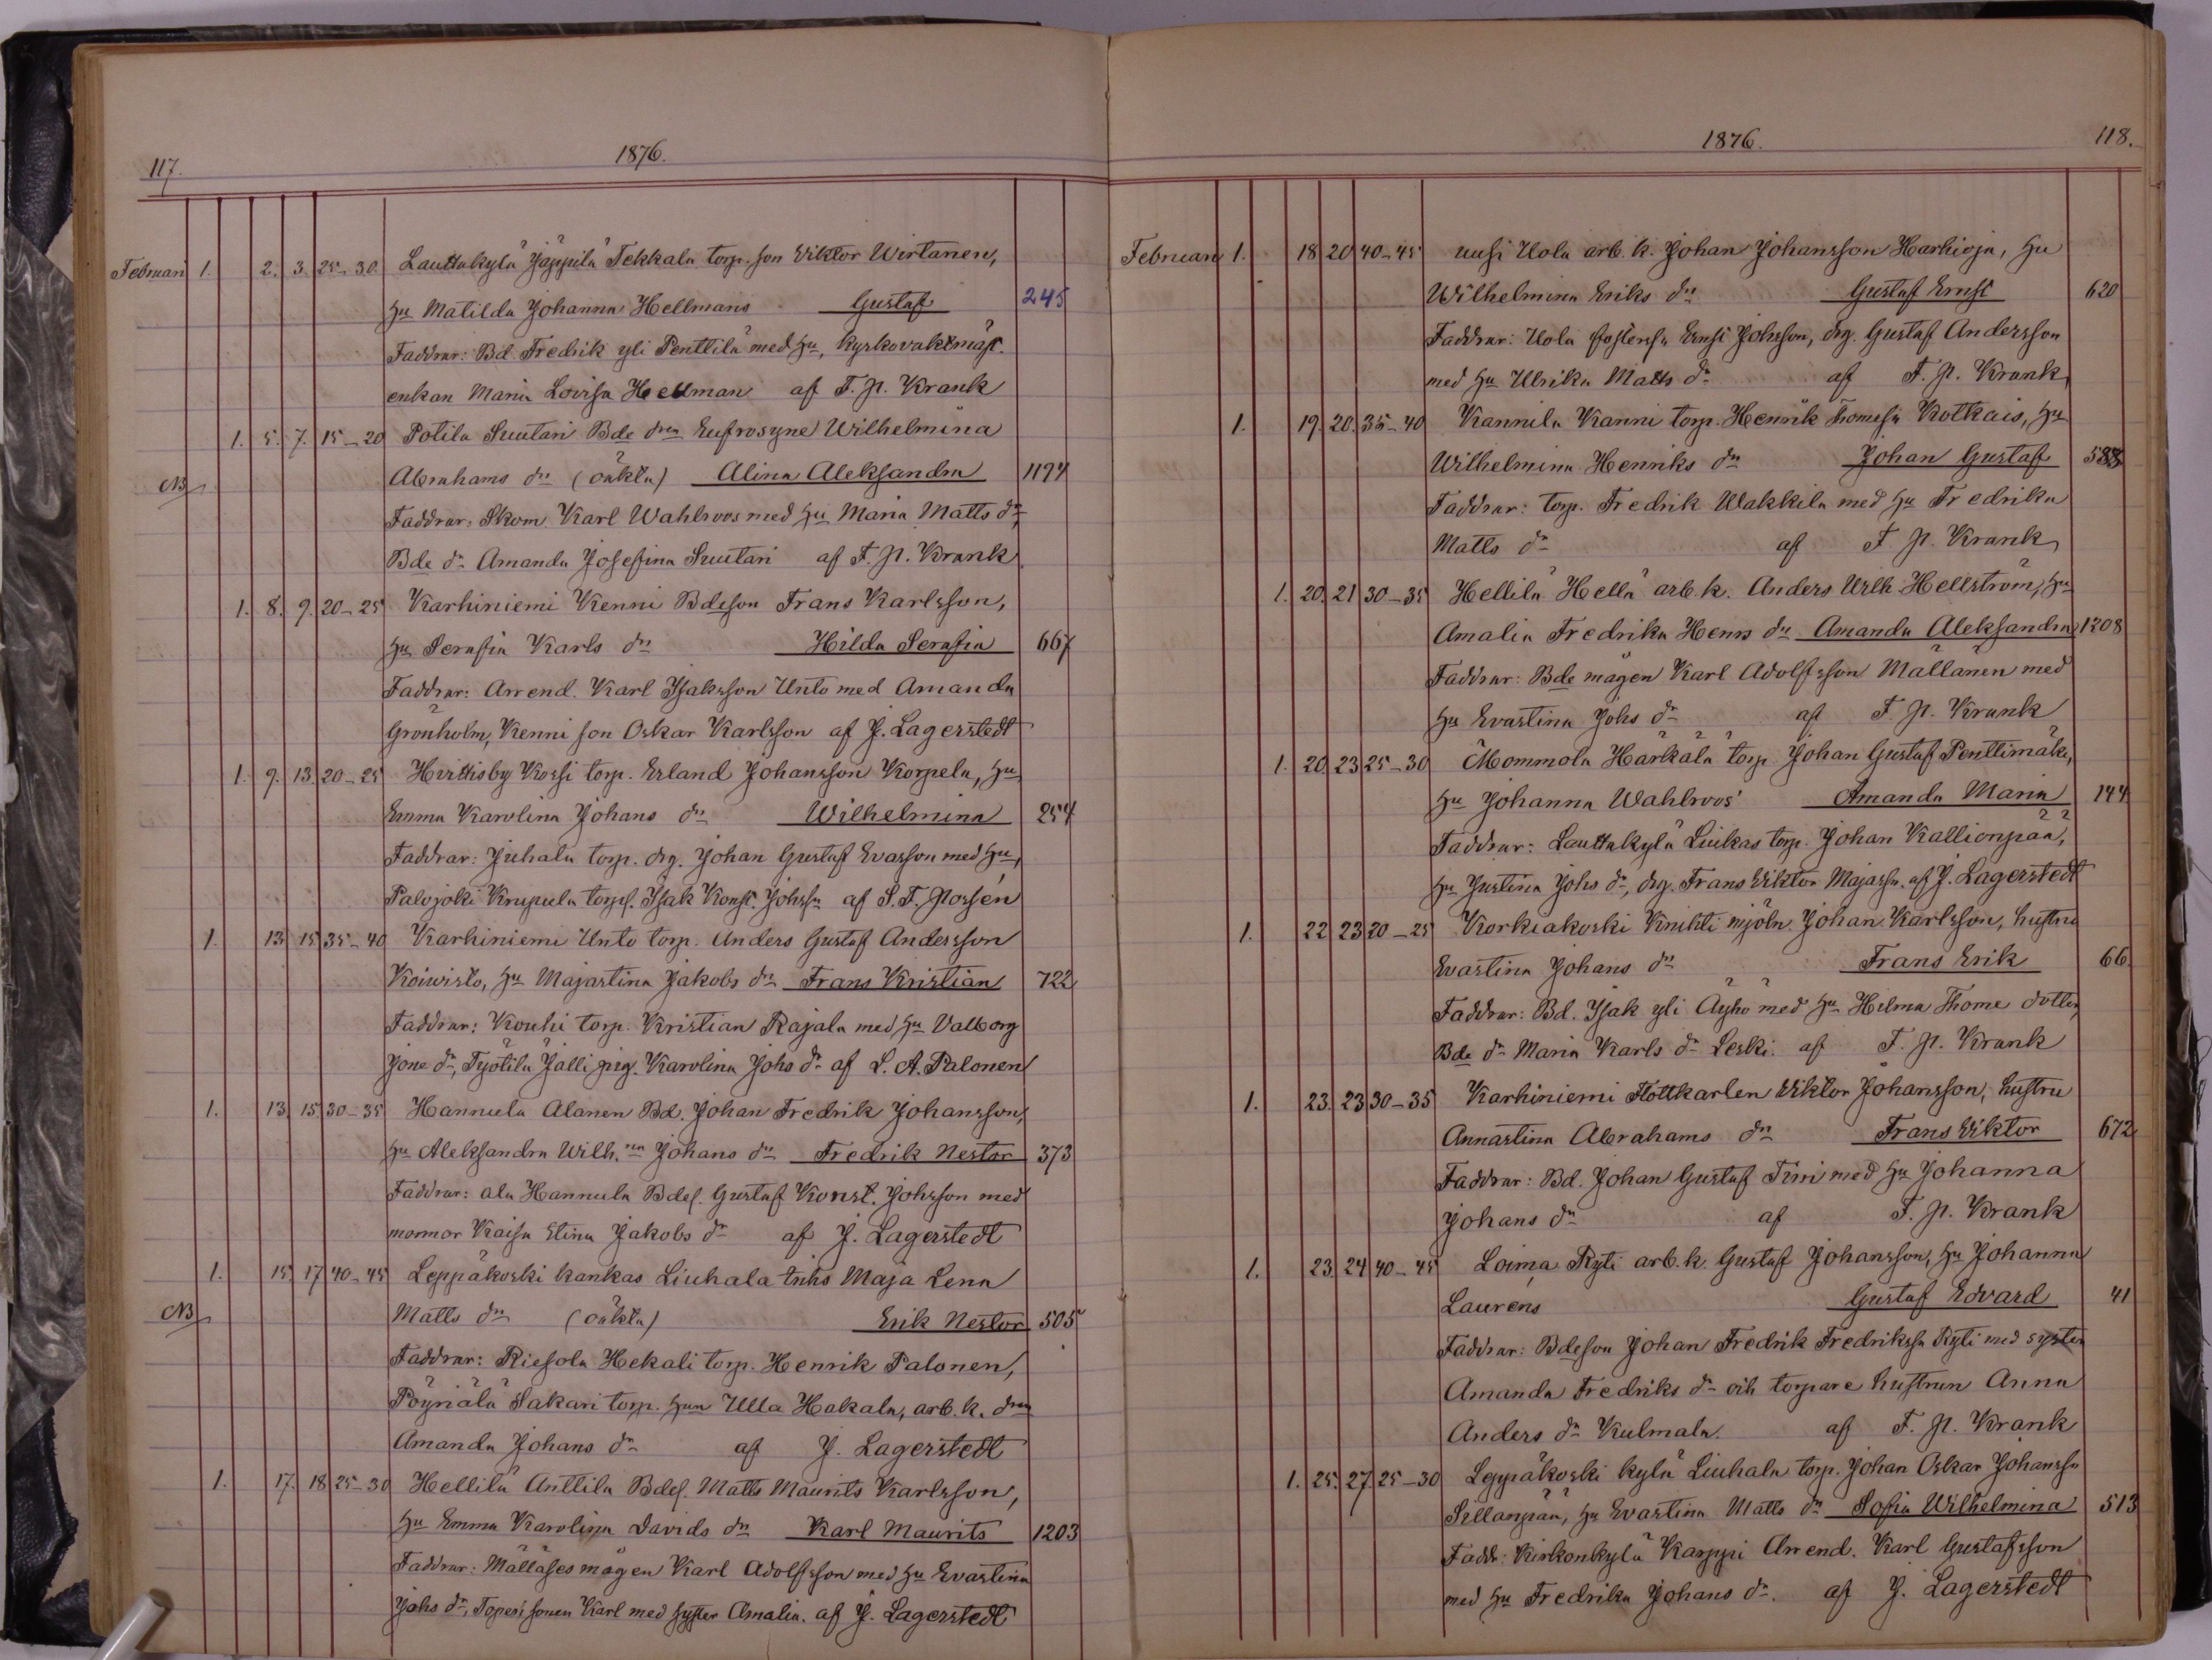 117.
1876.
Februari 1. 2. 3. 25-30 Lauttakylä Jäppilä Tekkala torp. son Viktor Wirtanen,
Hu Matilda Johanna Hellmans Gustaf 245
Faddrar: Bd. Fredrik yli Penttilä med Hu, Kyrkovaktmäst.
enkan Maria Lovisa Hellman af F. N. Krank
1. 5. 7. 15-20 Potila Suutari Bde drn Eufrosyne Wilhelmina
NB Abrahams dr (oäkta) Alina Aleksandra 1194
Faddrar: Skom. Karl Wahlroos med Hu Maria Matts dr,
Bde dr Amanda Josefina Suutari af F. N. Krank
1. 8. 9. 20-25 Karhiniemi Kenni Bdeson Frans Karlsson,
Hu Serafia Karls dr Hilda Serafia 667
Faddrar: Arrend. Karl Isaksson Unto med Amanda
Grönholm, Kenni son Oskar Karlsson af J. Lagerstedt
1. 9. 13. 20-25 Hvittisby Kossi torp. Erland Johansson Korpela, Hu
Emma Karolina Johans dr Wilhelmina 254
Faddrar: Juhala torp. drg. Johan Gustaf Evasson med Hu,
Palojoki Krupula torps. Isak Konst. Johssn af S. F. Nossén
1. 13. 15 35-40 Karhiniemi Unto torp. Anders Gustaf Andersson
Koiwisto, Hu Majastina Jakobs dr Frans Kristian 722
Faddrar: Kouhi torp. Kristian Rajala med Hu Valborg
Jone dr, Työtilä Jalli pig. Karolina Johs dr af L. A. Palonen
1. 13. 15. 30-35 Hannula Alanen Bd. Johan Fredrik Johansson,
Hu Aleksandra Wilh.na Johans dr Fredrik Nestor 373
Faddrar: ala Hannula Bdes. Gustaf Konst. Johsson med
mormor Kaisa Stina Jakobs dr af J. Lagerstedt
1. 15. 17 40-45 Leppäkoski kankas Liuhala Inhs Maja Lena
NB Matts dr (oäkta) Erik Nestor 505
Faddrar: Riesola Hekali torp. Henrik Palonen,
Pöyriälä Sakari torp. Hun Ulla Hakala, arb. k. drn
Amanda Johans dr af J. Lagerstedt
1. 17. 18 25-30 Hellilä Anttila Bdes. Matts Maurits Karlsson,
Hu Emma Karolina Davids dr Karl Maurits 1203
Faddrar: Mälläses mågen Karl Adolfsson med Hu Evastina
Johs dr, Toperi sonen Karl med syster Amalia. af J. Lagerstedt
1876.
118.
Februari 1. 18 20 40-45 uusi Uola arb. k. Johan Johansson Harhioja, Hu
Wilhelmina Eriks dr Gustaf Ernst 620
Faddrar: Uola fostersn Ernst Johsson, drg. Gustaf Andersson
med Hu Ulrika Matts dr af F. N. Krank
1. 19. 20. 35-40 Kannila Kanni torp. Henrik Thomesn Kotkais, Hu
Wilhelmina Henriks dr Johan Gustaf 588
Faddrar: torp. Fredrik Wakkila med Hu Fredrika
Matts dr af F N. Krank
1. 20. 21 30-35 Hellilä Hellä arb. k. Anders Wilh. Hellström, Hu
Amalia Fredrika Henrs dr Amanda Aleksandra 1208
Faddrar: Bde mågen Karl Adolfsson Mällänen med
Hu Evastina Johs dr af F. N. Krank
1. 20 23 25-30 Mommola Härkälä torp. Johan Gustaf Penttimäki,
Hu Johanna Wahlroos' Amanda Maria 144
Faddrar: Lauttakylä Luikas torp. Johan Kallionpää,
Hu Justina Johs dr, drg. Frans Viktor Majassn. af J. Lagerstedt
1. 22 23 20-25 Korkiakoski Knihti mjöln. Johan Karlsson, hustru
Evastina Johans dr Frans Erik 66.
Faddrar: Bd. Isak yli Äyhö med Hu Hilma Thome dotter,
Bde dr Maria Karls dr Leski. af F. N. Krank
1. 23. 23 30-35 Karhiniemi Flottkarlen Viktor Johansson, hustru
Annastina Abrahams dr Frans Viktor 672
Faddrar: Bd. Johan Gustaf Tiiri med Hu Johanna
Johans dr af F. N. Krank
1. 23. 24 40-45 Loima Ryti arb. k. Gustaf Johansson, Hu Johanna
Laurens Gustaf Edvard 41
Faddrar: Bdeson Johan Fredrik Fredrikssn Ryti med syster
Amanda Fredriks dr och torpare hustrun Anna
Anders dr Kulmala. af F. N. Krank
1. 25. 27. 25-30 Leppäkoski kylä Liuhala torp. Johan Oskar Johanssn
Sillanpää, Hu Evastina Matts dr Sofia Wilhelmina 513
Faddr: Kirkonkylä Karppi Arrend. Karl Gustafsson
med Hu Fredrika Johans dr. af J. Lagerstedt